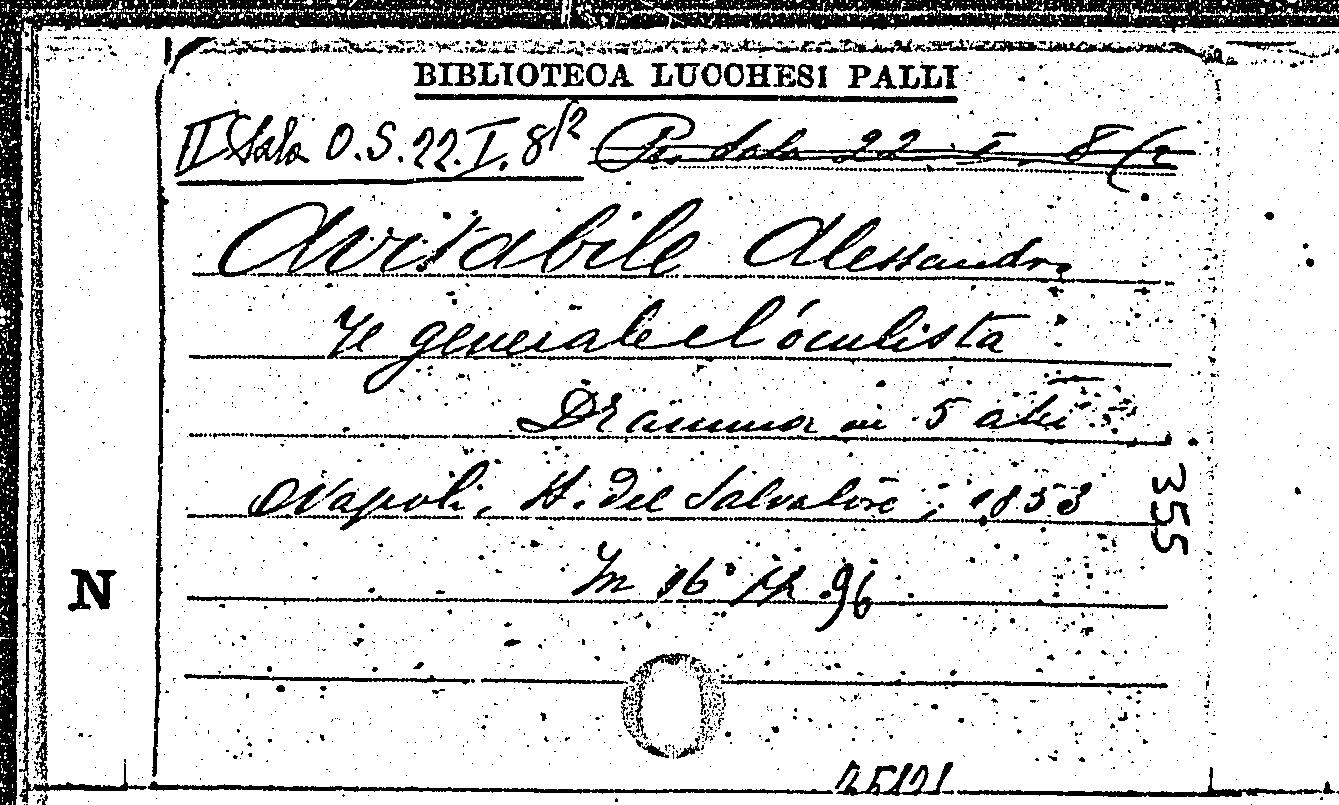 BIBLIOTECA LUCCHESI PALLI
II Sala O.S. 22. I. 8/2 Pr. Sala 22. I. 8(2
Avitabile Alessandro
Il generale e l'oculista
Dramma in 5 atti
Napoli, St. del Salvatore, 1853
In 16° pp. 96
355
N